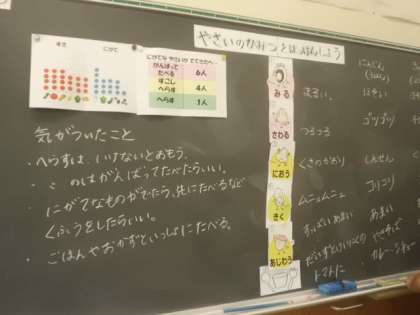 やさいのひみつをはっけんしよう
すき
にがて
にがてな やさいが でてきたら…
がんばって
たべる
6人
すこし
へらす
4人
へらす
1人
気がついたこと
・へらすは、いけないとおもう。
のはがんばってたべたらいい。
・にがてなものがでたら、先にたべるなど
くふうをしたらいい。
・ごはんやおかずといっしょにたべる。
みる
まるい
にんじん
ほそい
さわる
つるつる
ゴツゴツ
におう
くさのかおり
しんせん
きく
ムニュムニュ
コリコリ
あじわう
すっぱい あまい
あまい
やきそば
トマトに
カレー